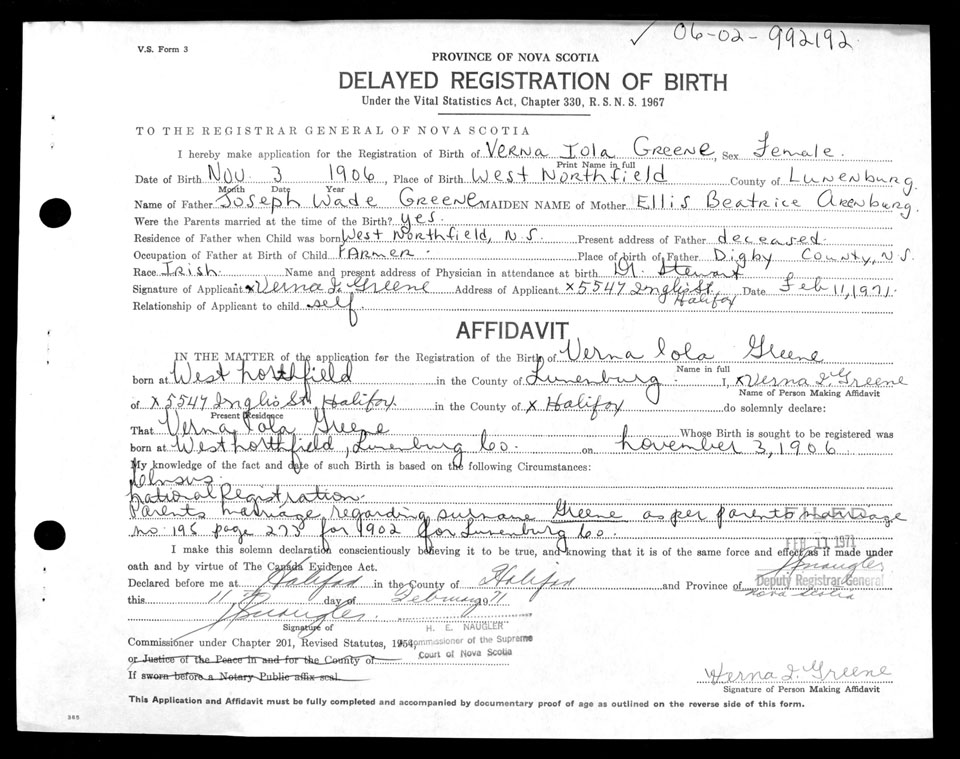 ✓ 06-02-992192
V.S. Form 3
PROVINCE OF NOVA SCOTIA
DELAYED REGISTRATION OF BIRTH
Under the Vital Statistics Act, Chapter 330, R. S. N. S. 1967
TO THE REGISTRAR GENERAL OF NOVA SCOTIA
I hereby make application for the Registration of Birth of Verna Iola Greene, Sex Female.
Print Name in full
Date of Birth Nov. 3 1906, Place of Birth West Northfield County of Lunenburg.
Month Date Year
Name of Father Joseph Wade Greene MAIDEN NAME of Mother Ellis Beatrice Arenburg.
Were the Parents married at the time of the Birth? yes.
Residence of Father when Child was born West Northfield, N.S. Present address of Father deceased.
Occupation of Father at Birth of Child Farmer. Place of birth of Father Digby County, N.S.
Race Irish. Name and present address of Physician in attendance at birth Dr. Stewart
Signature of Applicant x Verna I. Greene Address of Applicant x 5547 Inglis St. Halifax Date Feb 11, 1971.
Relationship of Applicant to child self.
AFFIDAVIT
IN THE MATTER of the application for the Registration of the Birth of Verna Iola Greene
Name in full
born at West Northfield in the County of Lunenburg. I, x Verna I. Greene
Name of Person Making Affidavit
of x 5547 Inglis St Halifax in the County of x Halifax do solemnly declare:
Present Residence
That Verna Iola Greene Whose Birth is sought to be registered was
born at West Northfield, Lunenburg Co. on November 3, 1906
My knowledge of the fact and date of such Birth is based on the following Circumstances:
Census
National Registration.
Parents marriage regarding surname Greene as per parents marriage
no 195 page 273 for 1902 for Lunenburg Co.
FILED
FEB 11 1971
I make this solemn declaration conscientiously believing it to be true, and knowing that it is of the same force and effect as if made under
oath and by virtue of The Canada Evidence Act.
Declared before me at Halifax in the County of Halifax and Province of
Deputy Registrar General
Nova Scotia
this 11th day of February 1971
Signature of
H. E. NAUGLER
Commissioner under Chapter 201, Revised Statutes, 1954,
Commissioner of the Supreme
Court of Nova Scotia
or Justice of the Peace in and for the County of
If sworn before a Notary Public affix seal.
Verna I. Greene
Signature of Person Making Affidavit
This Application and Affidavit must be fully completed and accompanied by documentary proof of age as outlined on the reverse side of this form.
365